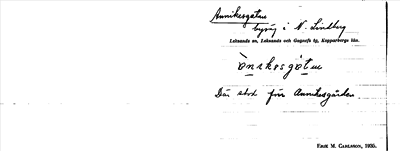 Annikesgatan
byväg i N. Lindberg
Leksands sn, Leksands och Gagnefs tg, Kopparbergs län.
Där stod förr Annikesgården.
ERIK M. CARLSSON, 1935.